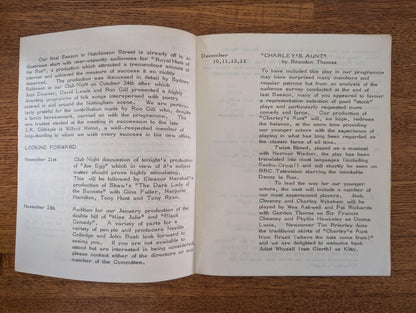 Our final Season in Hutchinson Street is already off to an
illustrious start with near-capacity audiences for "Royal Hunt of
the Sun", a production which attracted a tremendous amount of
interest and achieved the measure of success it so richly
deserved. The production was discussed in detail by Sydney
Robinson at our Club Night on October 24th after which
Joan Drewry, David Lewis and Ron Gill presented a highly
diverting programme of songs interspersed with poetry
centred in and around the Nottingham scene. We are particu-
larly grateful for the contribution made by Ron Gill who, despite
a family bereavement, carried on with the programme. The
new Trustee elected at the meeting in succession to the late
J.R. Gillespie is Alfred Hiron, a well-respected member of long-
standing to whom we wish every success in his new office.
LOOKING FORWARD
November 21st
Club Night discussion of tonight's production
of "Joe Egg" which in view of it's subject
matter should prove highly stimulating.
This will be followed by Eleanor Marshall's
production of Shaw's "The Dark Lady of
the Sonnets" with Gina Fuller, Marjorie
Hamilton, Tony Hunt and Tony Ryan.
November 29th
Audition for our January production of the
double bill of "Miss Julie" and "Black
Comedy". A variety of parts for a
variety of people and producers Neville
Colledge and John Rush look forward to
seeing you. If you are not available to
attend but are interested in being considered
please contact either of the directors or any
member of the Committee.
December
10,11,12,13
"CHARLEY'S AUNT"
by Brandon Thomas
To have included this play in our programme
may have surprised many members and
regular patrons but from an analysis of the
audience survey conducted at the end of
last Season, many of you appeared to favour
a representative selection of good "stock"
plays and particularly requested more
comedy and large. Our production of
"Charley's Aunt" will, we hope, redress
the balance, at the same time providing
our younger actors with the experience of
playing in what has long been regarded as
the classic farce of all time.
Twice filmed, played as a musical
with Norman Wisdom, the play has been
translated into most languages (including
Serbo-Croat!) and will shortly be seen on
BBC Television starring the inimitable
Danny la Rue.
To lead the way for our younger
actors, the cast will include a number of
our most experienced players. Charley,
Chesney and Charley Wykeham will be
played by Wes Ashwell and Pat Richards
with Gordon Thoms as Sir Francis
Chesney and Phyllis Hawksley as Donna
Lucia. Newcomer Tim Brierley dons
the traditional skirts of "Charley's Aunt
from Brazil (where the nuts come from)"
and we are delighted to welcome back
Juliet Whysall (nee Gierth) as Kitty,